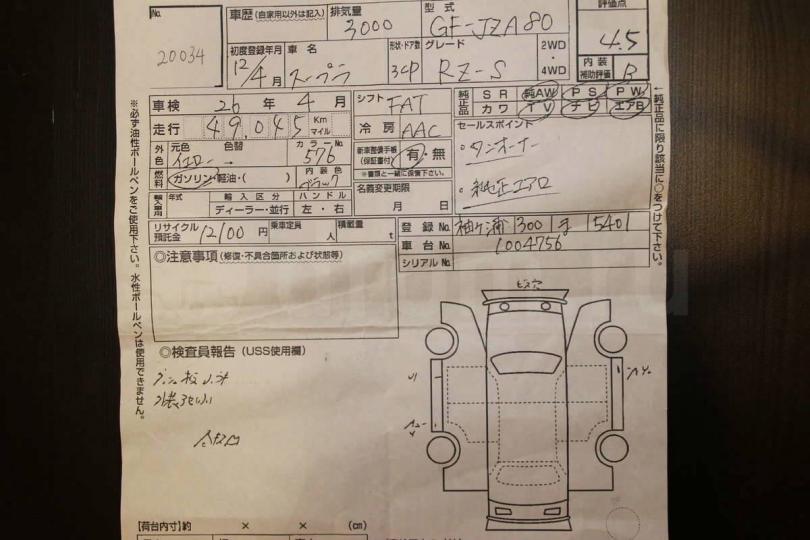 No.
20034
車歴(自家用以外は記入)
排気量
3000
型式
GF-JZA80
評価点
4.5
初度登録年月
12/4月
車名
スープラ
形状・ドア数
3CP
グレード
RZ-S
2WD
・
4WD
内装
補助評価
B
車検 26年 4月
シフト
FAT
純正品
SR 純AW PS PW
カワ TV ナビ エアB
走行 49,045 Km マイル
冷房
AAC
セールスポイント
・ワンオーナー
・純正エアロ
外色
元色 色替
イエロー →
カラーNo.
576
新車整備手帳
(保証書付)
有・無
※書類と一緒に保管下さい。
燃料
ガソリン・軽油・( )
内装色
ブラック
名義変更期限
月 日
輸入車用
年式
輸入区分
ディーラー・並行
ハンドル
左・右
リサイクル
預託金
12100円
乗車定員
人
積載量
t
登録No.
袖ヶ浦 300 ま 5401
車台No.
1004756
シリアルNo.
◎注意事項(修復・不具合箇所および状態等)
◎検査員報告(USS使用欄)
ビス穴
【荷台内寸】約 × × (cm)
※必ず油性ボールペンをご使用下さい。水性ボールペンは使用できません。
純正品に限り該当に○をつけて下さい。